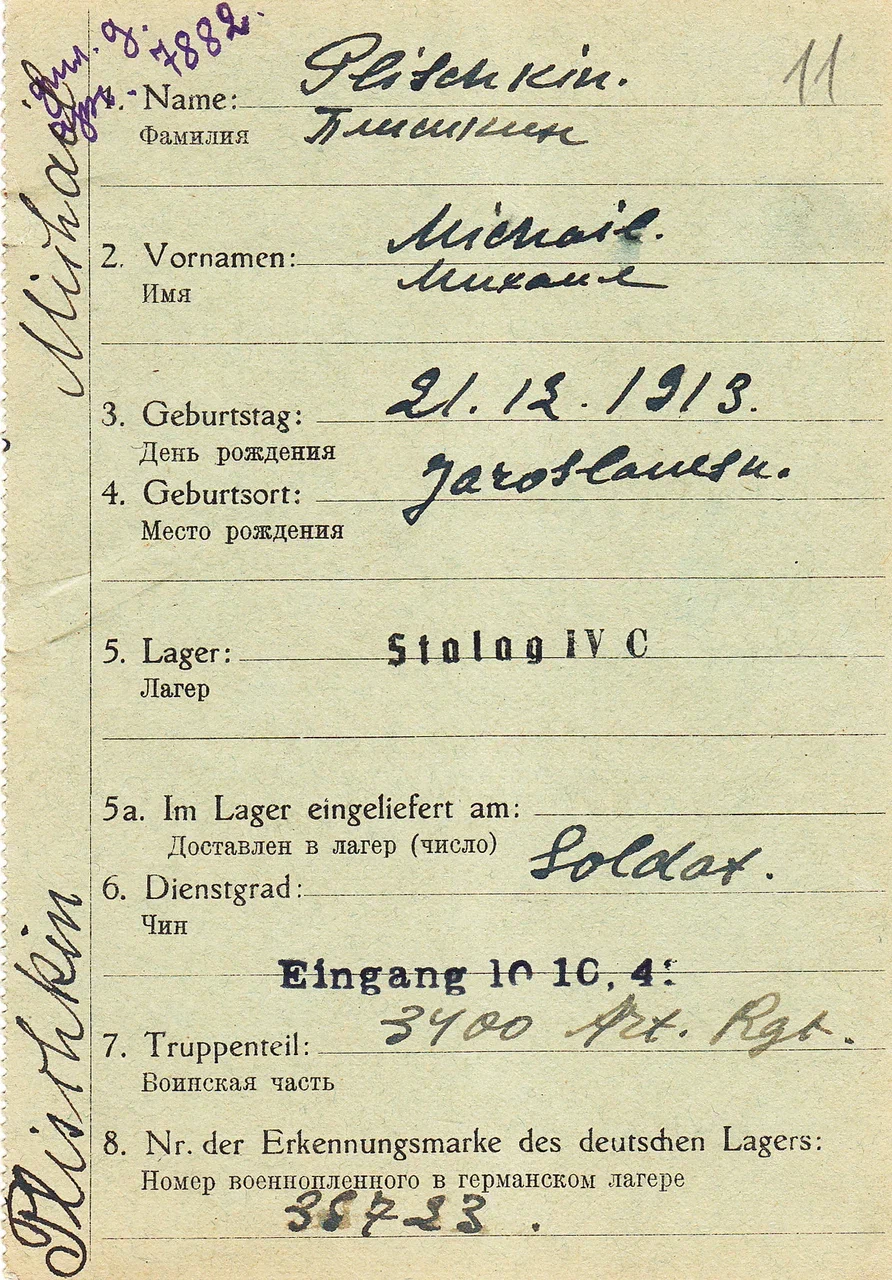 7882.
11
1. Name: Plischkin.
Фамилия Плишкин
2. Vornamen: Michail.
Имя Михаил
3. Geburtstag: 21.12.1913.
День рождения
4. Geburtsort:
Место рождения
5. Lager: Stalag IV C
Лагерь
5a. Im Lager eingeliefert am:
Доставлен в лагер (число)
6. Dienstgrad: Soldat.
Чин
Eingang 10 10, 41
7. Truppenteil: 3400 Art. Rgt.
Воинская часть
8. Nr. der Erkennungsmarke des deutschen Lagers:
Номер военнопленного в германском лагере
38723.
Plischkin Michail